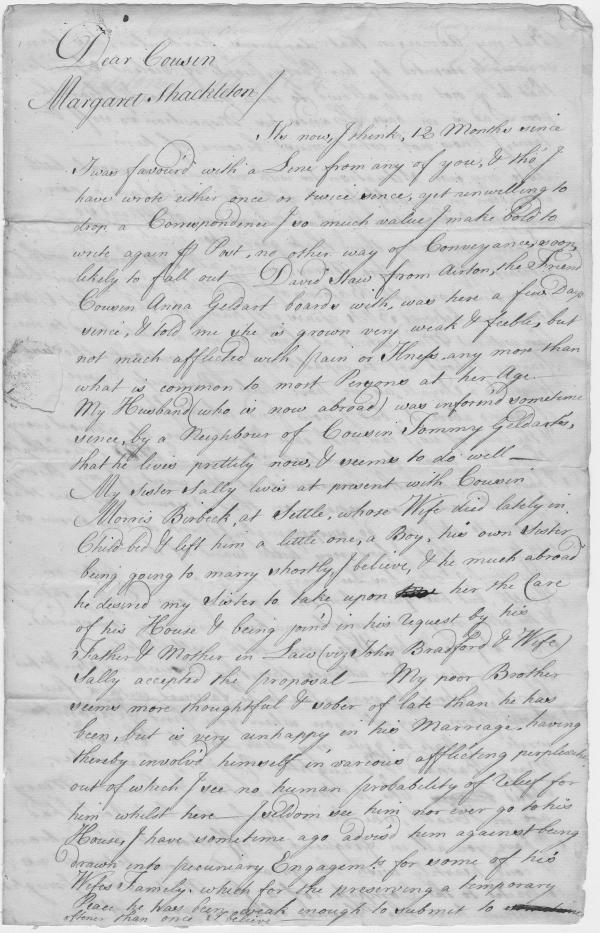 Dear Cousin
Margaret Shackleton/
It's now, I think, 12 Months since
I was favour'd with a Line from any of you, & tho' I
have wrote either once or twice since, yet unwilling to
drop a Correspondence I so much value I make bold to
write again p Post, no other way of Conveyance, soon,
likely to fall out — David Haw from Airton, the Friend
Cousin Anna Geldart boards with, was here a few Days
since, & told me she is grown very weak & feeble, but
not much afflicted with pain or Illness any more than
what is common to most Persons at her Age —
My Husband (who is now abroad) was inform'd sometime
since, by a Neighbour of Cousin Tommy Geldart's,
that he lives prettily now, & seems to do well —
My Sister Sally lives at present with Cousin
Morris Birbeck, at Settle, whose Wife died lately in
Child-bed & left him a little one, a Boy, his own Sister
being going to marry shortly, I believe, & he much abroad
he desired my Sister to take upon her the Care
of his House & being join'd in his request by his
Father & Mother in Law (viz John Bradford & Wife)
Sally accepted the proposal — My poor Brother
seems more thoughtful & sober of late than he has
been, but is very unhappy in his Marriage, having
thereby involv'd himself in various afflicting perplexities
out of which I see no human probability of relief for
him whilst here — I seldom see him nor ever go to his
House, I have sometime ago advis'd him against being
drawn into pecuniary Engagemts for some of his
Wife's Family, which for the preserving a temporary
Peace he has been weak enough to submit to
oftener than once I believe —